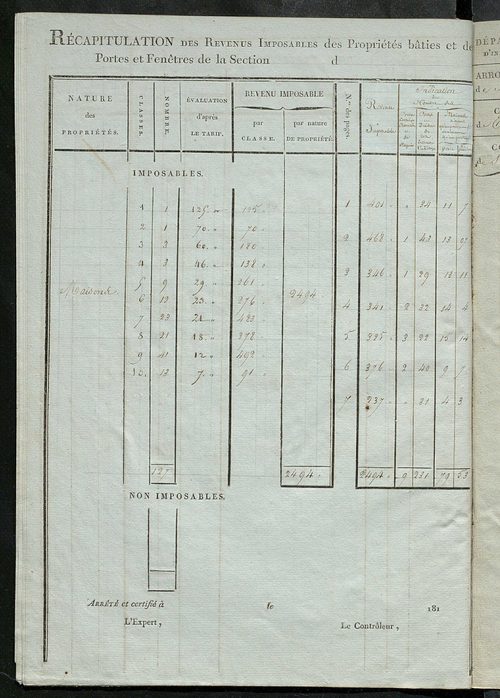 RÉCAPITULATION DES REVENUS IMPOSABLES des Propriétés bâties et de
Portes et Fenêtres de la Section d
NATURE
des
PROPRIÉTÉS.
CLASSES.
NOMBRE.
ÉVALUATION
d'après
LE TARIF.
REVENU IMPOSABLE
par
CLASSE.
par nature
DE PROPRIÉTÉ.
N.os des pages.
Revenu
Imposable
Indication
IMPOSABLES.
1 1 125. 125. 1 401 34 11 7
2 1 70. 70. 2 468 1 43 13
3 3 60. 180 3 346 1 29
4 3 46. 138.
Maisons. 5 9 29. 261 2494
6 12 23. 276 4 341 2 32 14 4
7 23 21. 483
8 21 18. 378 5 325 3 32 14
9 41 12. 492
10. 13 7. 91 6 376 2 40 9 7
7 237 21 4 3
127 2494. 2494. 9 231 79
NON IMPOSABLES.
ARRÊTÉ et certifié à le 181
L'Expert,
Le Contrôleur,
DÉPA
D'IN
ARRO
C
CO